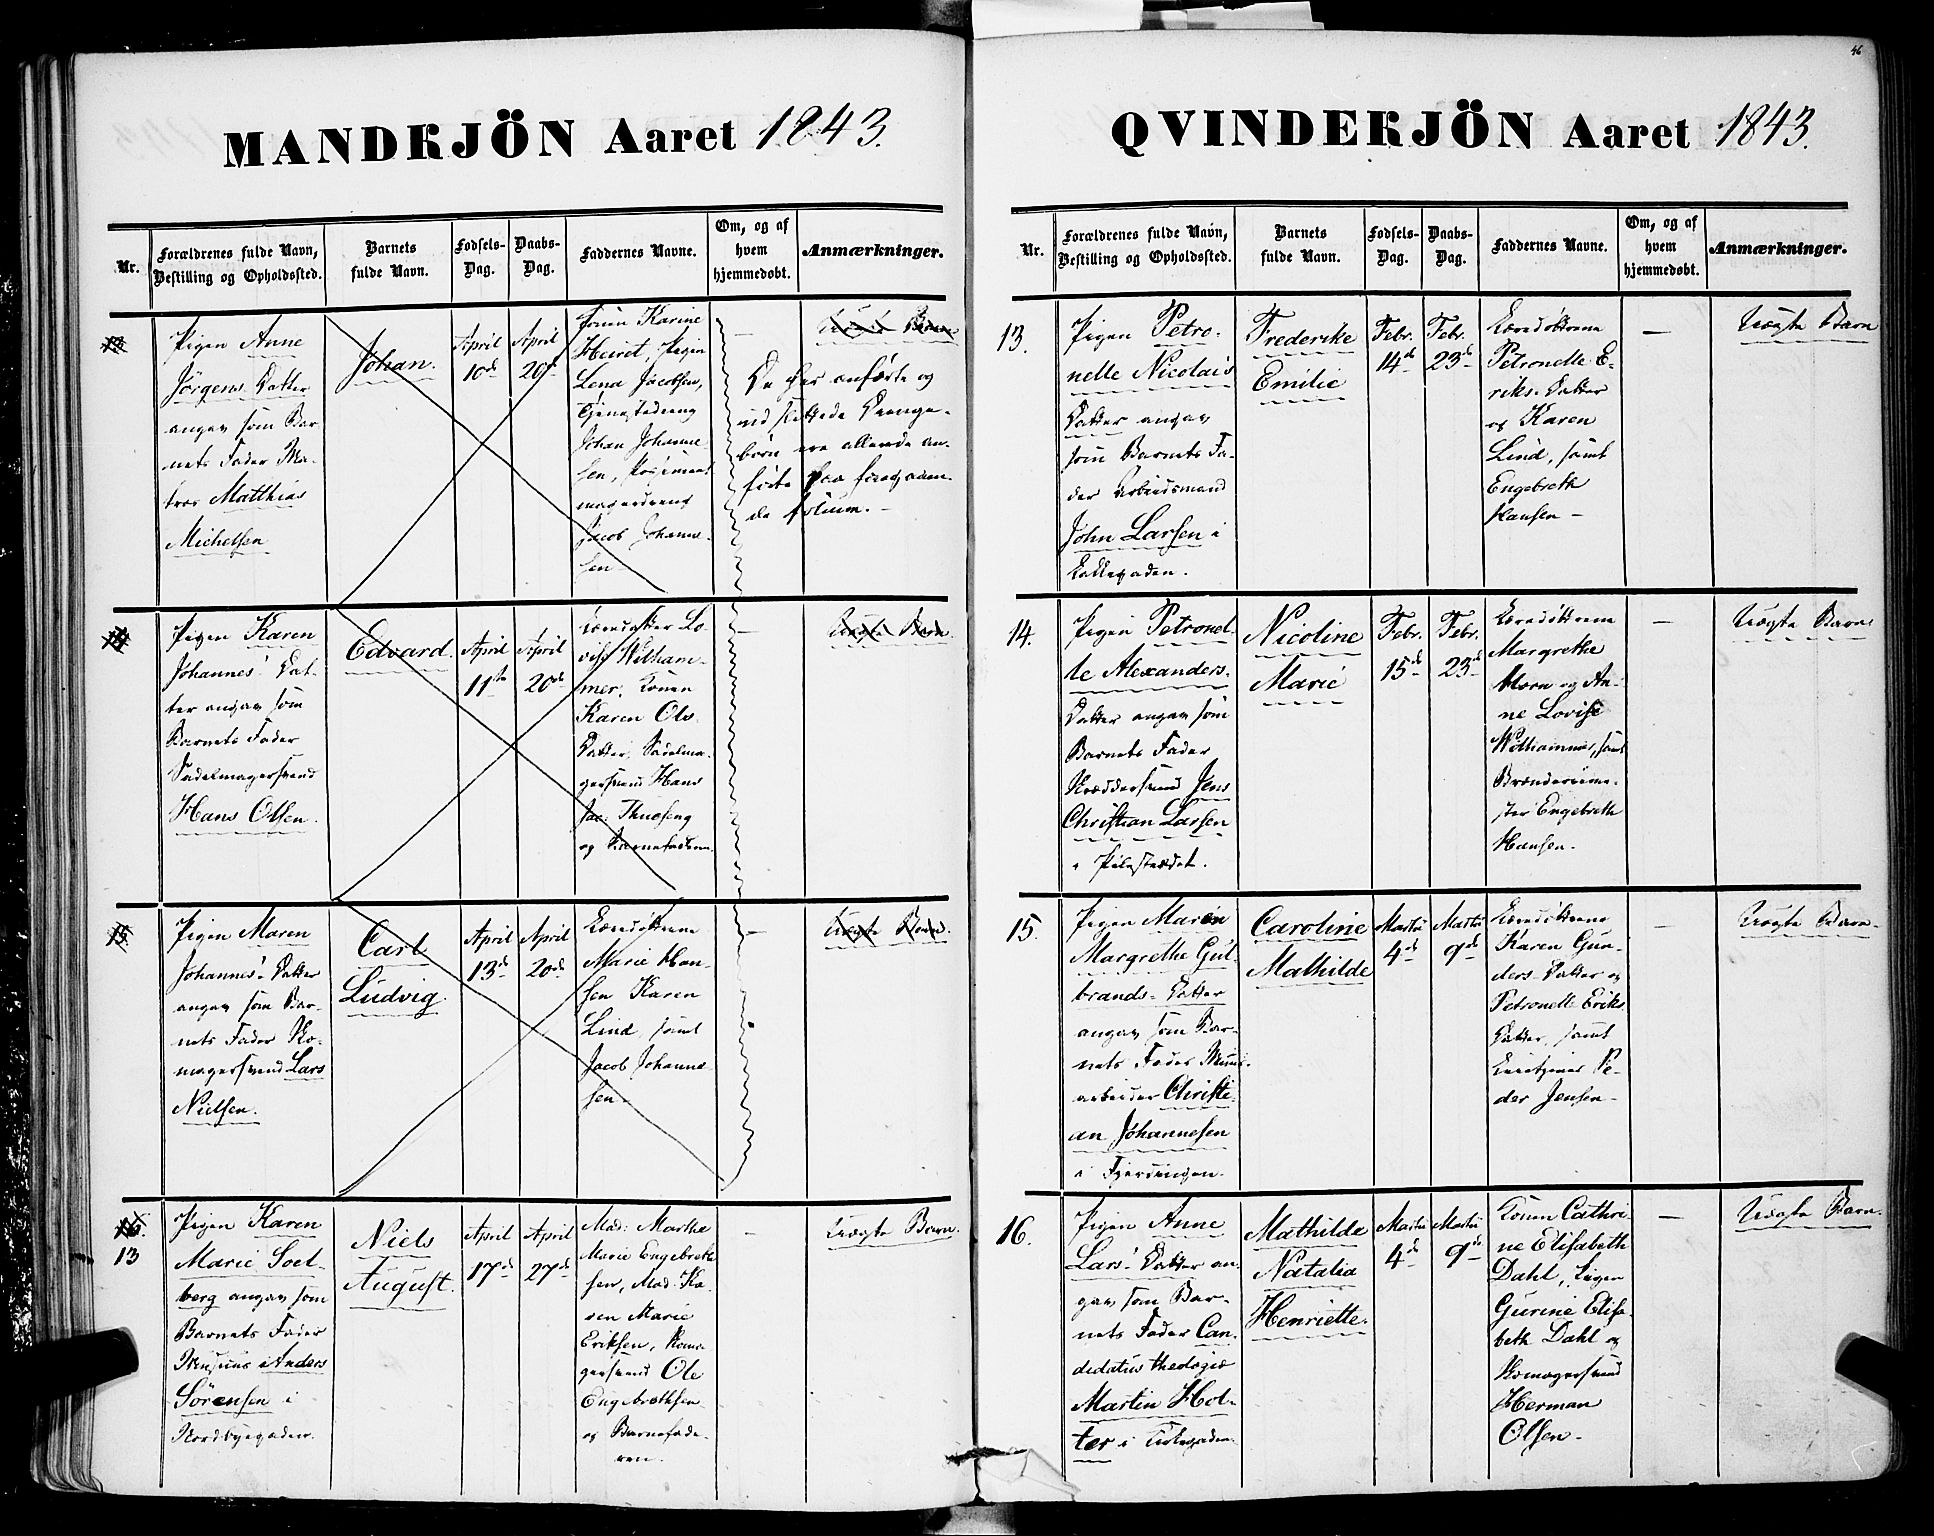 46
MANDKJÖN Aaret 1843.
Nr.
Forældrenes fulde Navn,
Bestilling og Opholdssted.
Barnets
fulde Navn.
Fødsels-
Dag.
Daabs-
Dag.
Faddernes Navne.
Om, og af
hvem
hjemmedøbt.
Anmærkninger.
Pigen Anne
Jörgens Datter
angav som Bar-
nets Fader Ma-
tros Matthias
Michelsen
Johan.
April
10de
April
20de
Karine
Heiret, Pigen
Lena Jacobsen,
Johan Johanne-
sen,
Jacob Johanne-
sen
—
Uægte Barn
De her anförte og
udslettede Drenge-
börn ere allerede an-
förte paa foregaaen-
de folium. -
14
Pigen Karen
Johannes' Dat-
ter angav som
Barnets Fader
Sadelmagersvend
Hans Olsen.
Edvard.
April
11te
April
20de
Læredatter Lo-
vise Wilham-
mer, Konen
Karen Ols-
Datter, Sadelma-
gersvend Hans
Jac:
og Barnefaderen
—
Uægte Barn.
15
Pigen Maren
Johannes' Datter
angav som Bar-
nets Fader Sko-
magersvend Lars
Nielsen.
Carl
Ludvig.
April
13de
April
20de
Leredöttrene
Marie Han-
sen Karen
Lind, samt
Jacob Johanne-
sen
—
Uægte Barn.
16.
13
Pigen Karen
Marie Soel-
berg angav som
Barnets Fader
Anders
Sörensen i
Nordbyegaden.
Niels
August.
April
17de
April
27de
Mad: Marthe
Marie Engebreth-
sen, Mad. Ka-
ren Marie
Eriksen, Skoma-
gersvend Ole
Engebrethsen
og Barnefade-
ren.
—
Uægte Barn.
QVINDEKJÖN Aaret 1843.
Nr.
Forældrenes fulde Navn,
Bestilling og Opholdssted.
Barnets
fulde Navn.
Fødsels-
Dag.
Daabs-
Dag.
Faddernes Navne.
Om, og af
hvem
hjemmedøbt.
Anmærkninger.
13.
Pigen Petro-
nelle Nicolais
Datter angav
som Barnets Fa-
der Arbeidsmand
John Larsen i
Lakkegaden.
Frederike
Emilie
Febr.
14de
Febr.
23de
Leredöttrene
Petronelle E-
riks-Datter
og Karen
Lind, samt
Engebreth
Hansen —
—
Uægte Barn
14.
Pigen Petronel-
le Alexanders-
Datter angav som
Barnets Fader
Skræddersvend Jens
Christian Larsen
i Pilestrædet.
Nicoline
Marie
Febr.
15de
Febr.
23de
Leredöttrene
Margrethe
Horn og An-
ne Lovise
Wilhammer, samt
Brænderime-
ster Engebreth
Hansen.
—
Uægte Barn
15.
Pigen Maren
Margrethe Gul-
brands-Datter
angav som Bar-
nets Fader Muur-
arbeider Christi-
an Johannesen
i Fjerdingen.
Caroline
Mathilde
Martii
4de
Martii
9de
Leredöttrene
Karen Gun-
ders-Datter og
Petronelle Eriks
Datter, samt
Pe-
der Jensen—
—
Uægte Barn.
16.
Pigen Anne
Lars'-Datter an-
gav som Bar-
nets Fader Can-
didatus theologiæ
Martin Hol-
ter i
Mathilde
Natalia
Henriette.
Martii
4de
Martii
9de
Konen Cathri-
ne Elisabeth
Dahl, Pigen
Gurine Elisa-
beth Dahl og
Skomagersvend
Herman
Olsen—
—
Uægte Barn.